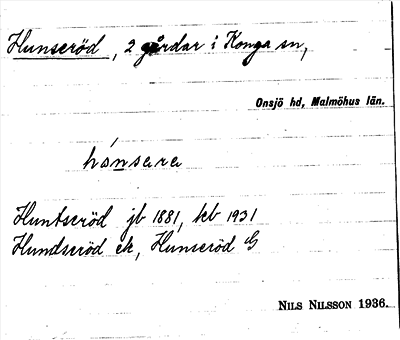 Hunseröd, 2 gårdar i Konga sn,
Onsjö hd, Malmöhus län.
hónsara
Huntseröd jb 1881, kb 1931
Hundseröd ek, Hunseröd G
NILS NILSSON 1936.